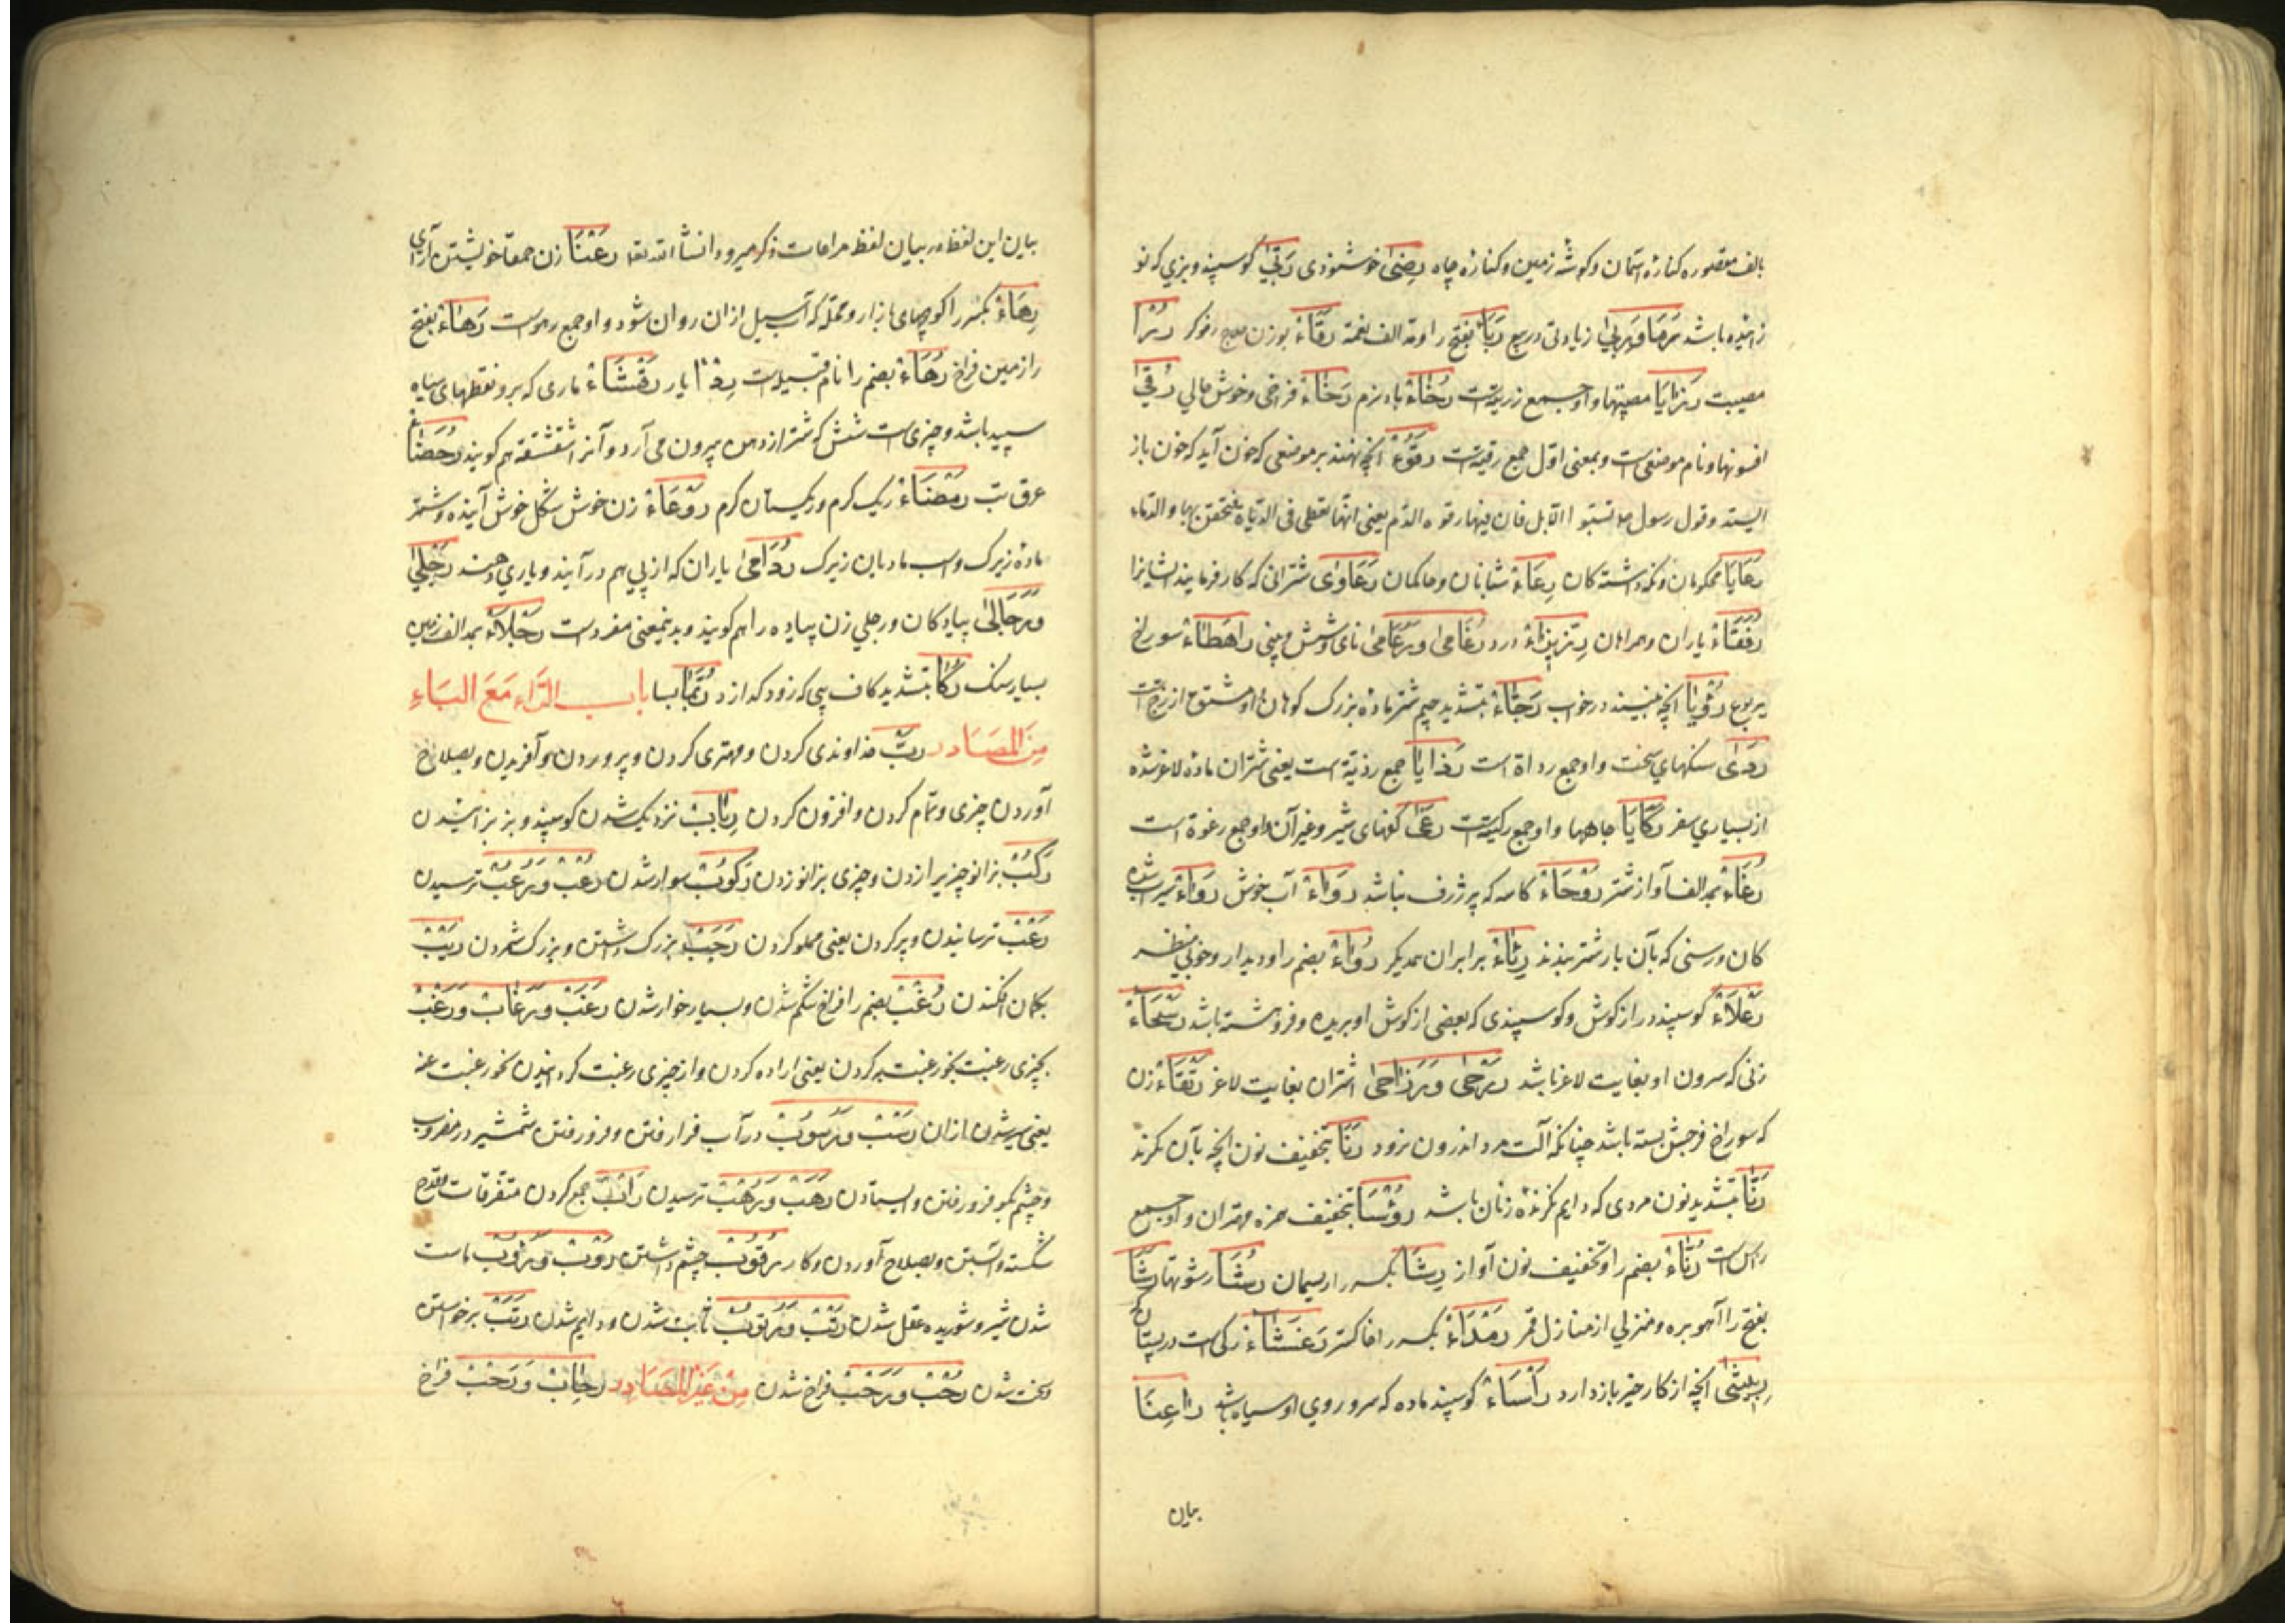 بالف مقصوره کناره آسمان و کوشه زمین و کناره چاه رِضیٰ خوشنودی رُبّیٰ کوسپند و بزی که نو
زاییده باشد رَمَا وَرِبیٰ زیادتی در بیع رَبَاءٌ بفتح را و مد الف نعمة رَفّاءٌ بوزن علاج رفوکر رُزْءٌ
مصیبت رَزَایَا مصیبتها و او جمع رزیةست رُخَاءٌ باد نرم رَخَاءٌ فراخی و خوش حالی رُقیٰ
افسونها و نام موضعی است و بمعنی اول جمع رقیةست رَقُوْءٌ آنچه نهند بر موضعی که خون آید که خون باز
ایستد و قول رسول لا تسبوا الابل فان فیها رقوء الدم یعنی انها تعطی فی الدیات فتحقن بها الدماء
رَعَایَا محکومان و نکه داشته کان رِعَاءٌ شبانان و حاکمان رَعَاوٰی شترانی که کار فرمایند ایشانرا
رُفَقَاءٌ یاران و همراهان رِزِیزَاءٌ درد رُغَامیٰ وَرُعَامیٰ نای شش و بینی رَاهِطَاءٌ سوراخ
یربوع رُؤْیَا آنچه ببینند در خواب رَجّاءٌ بتشدید جیم شتر ماده بزرک کوهان و او مشتق از رج است
رَدٰی سنکهای سخت و او جمع رداة است رَذَایَا جمع رذیة است یعنی شتران ماده لاغر شده
از بسیاری سفر رَکَایَا چاهها و او جمع رکیةست رُغیٰ کفهای شیر و غیر آن و او جمع رغوة است
رُغَاءٌ بمد الف آواز شتر رَوْحَاءٌ کاسه که پر ژرف نباشد رَوَاءٌ آب خوش رِوَاءٌ سیراب شده
کان و رسنی که بآن بار شتر بندند رِئَاءٌ برابر ان یکدیکر رُوَاءٌ بضم را و دیدار و خوبی منظر
رَعْلَاءٌ کوسپند دراز کوش و کوسپندی که بعضی از کوش او بریده و فروهشته باشد رَسْحَاءٌ
زنی که سرون او بغایت لاغر باشد رَزْحیٰ وَرَزَاحیٰ اشتران بغایت لاغر رَتْقَاءٌ زن
که سوراخ فرجش بسته باشد چنانکه آلت مرد اندرون نرود رَنَا بتخفیف نون آنچه بآن نکرند
رَنَّا بتشدید نون مردی که دایم نکرنده زنان باشد رُؤَسَا بتخفیف همزه مهتران و او جمع
راس است رُنَاءٌ بضم را و تخفیف نون آواز رِشَا بکسر را ریسمان رُشَا رشوتها رَشَا
بفتح را آهو بره و منزلی از منازل قمر رِمْدَاءٌ بکسر را خاکستر رَغْثَاءٌ رکی است در پستان
رِبِّیثیٰ آنچه از کار خیر باز دارد رَأْسَاءٌ کوسپند ماده که سر و روی او سیاه باشد رَاعِنَا
بیان
بیان این لفظ در بیان لفظ مراعات ذکر میرود انشا الله تعا رَعْنَا زن حمقا خویشتن آرای
رِهَاءٌ بکسر را کوچهای بازار و محله که آب سیل از ان روان شود و او جمع رهو است رَهَاءٌ بفتح
را زمین فراخ رُهَاءٌ بضم را نام قبیله است رِدْءًا یار رَقْشَاءٌ ماری که برو نقطهای سیاه
سپید باشد و چیزی است شش که شتر از دهن بیرون می آرد و آنرا شقشقه هم کویند رُحَضَاءٌ
عرق تب رَمْضَاءٌ ریک کرم و ریکستان کرم رَوْعَاءٌ زن خوش شکل خوش آینده و شتر
ماده زیرک و اسب مادیان زیرک رُدَامیٰ یاران که از پی هم در آیند و یاری دهند رَجْلیٰ
وَرَجَالیٰ پیادکان و رجلی زن پیاده را هم کویند و بدینمعنی مفرد است رَجْلَاءٌ بمد الف زمین
بسیار سنک رَکَّا بتشدید کاف پی که زود کداز د رُبَمَا بسا باب الراء مَعَ البَاءِ
مِنَ المَصَادر رَبٌّ خداوندی کردن و مهتری کردن و پروردن و آفریدن و بصلاح
آوردن چیزی و تمام کردن و افزون کردن رِبَابٌ نزدیک شدن کوسپند و بز بزاییدن
رَکْبٌ بزانو چیزیرا زدن و چیزی بزانو زدن رُکُوْبٌ سوار شدن رُعْبٌ وَرُعُبٌ ترسیدن
رَعْبٌ ترسانیدن و پر کردن یعنی مملو کردن رَجَبٌ بزرک داشتن و بزرک شمردن رَیْبٌ
بکمان افکندن رُغْبٌ بضم را فراخ شکم شدن و بسیار خوار شدن رَغَبٌ وَرَغَابٌ وَرَغْبٌ
بچیزی رغبت بخور غبت به کردن یعنی اراده کردن و از چیزی رغبت کردانیدن نحو رغبت عنه
یعنی سیر شدن از ان رَسْبٌ وَرُسُوْبٌ در آب فرو رفتن و فرو رفتن شمشیر در مضروب
و چشم بکو فرو رفتن و ایستادن رَهَبٌ وَرَهْبٌ ترسیدن رَأْبٌ جمع کردن متفرقات و قدح
شکسته و آبستن و بصلاح آوردن و کار رُقُوْبٌ چشم داشتن رَوْبٌ وَرُؤُوْبٌ ماست
شدن شیر و شوریده عقل شدن رَتْبٌ وَرُتُوْبٌ ثابت شدن و دایم شدن رَتَبٌ برخواستن
و سخت شدن رُحْبٌ وَرَحْبٌ فراخ شدن مِنْ غَیْرِ المَصَادِر رُحَابٌ وَرَحْبٌ فراخ